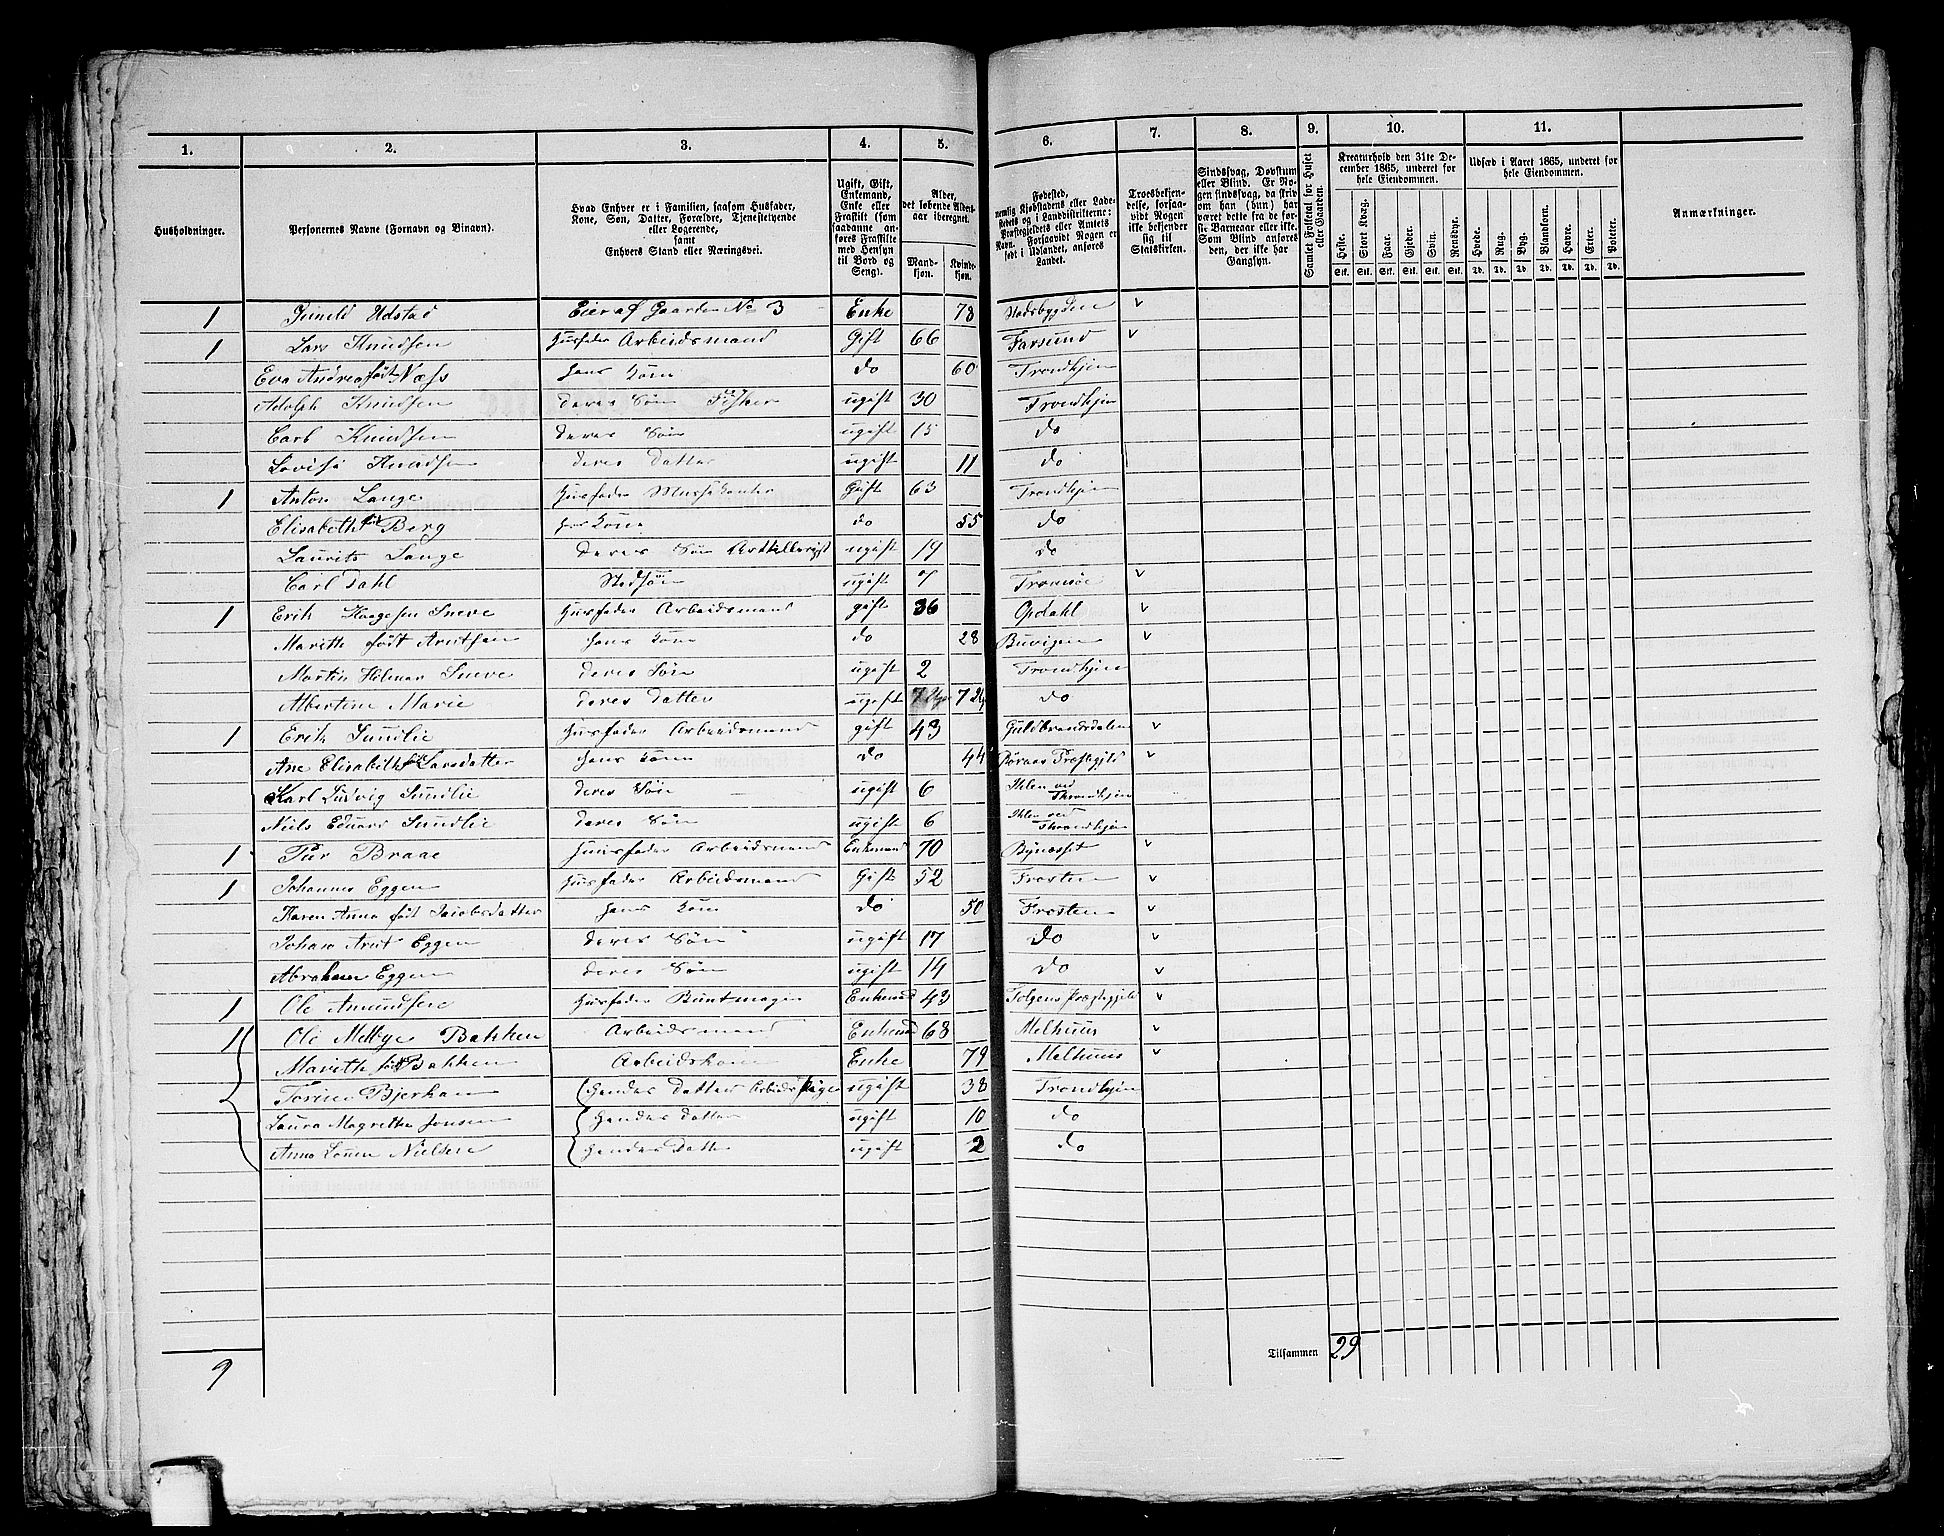 1. 2. 3. 4. 5. 6. 7. 8. 9. 10. 11.
Husholdninger.
Personernes Navne (Fornavn og Binavn).
Hvad Enhver er i Familien, saasom Husfader, Kone, Søn, Datter, Forældre, Tjenestetyende eller Logerende, samt Enhvers Stand eller Næringsvei.
Ugift, Gift, Enkemand, Enke eller Fraskilt (som saadanne anføres Fraskilte med Hensyn til Bord og Seng).
Alder, det løbende Aldersaar iberegnet.
Mandkjøn. Kvindekjøn.
Fødested, nemlig Kjøbstadens eller Ladestedets og i Landdistrikterne: Præstegjeldets eller Amtets Navn. Forsaavidt Nogen er født i Udlandet, anføres Landet.
Troesbekjendelse, forsaavidt Nogen ikke bekjender sig til Statskirken.
Sindssvag, Døvstum eller Blind. Er Nogen sindssvag, da skrives om han (hun) har været dette fra de første Barneaar eller ikke. Som Blind anføres den, der ikke har Gangsyn.
Samlet Folketal for Huset eller Gaarden.
Kreaturhold den 31te December 1865, underet for hele Eiendommen.
Heste. Stort Kvæg. Faar. Gjeder. Svin. Rensdyr.
Stk. Stk. Stk. Stk. Stk. Stk.
Udsæd i Aaret 1865, underet for hele Eiendommen.
Hvede. Rug. Byg. Blandkorn. Havre. Erter. Poteter.
Td. Td. Td. Td. Td. Td. Td.
Anmærkninger.
1 Gunild Udstad Eier af Gaarden No 3 Enke 78 Stadsbygden v
1 Lars Knudsen Husfader Arbeidsmand Gift 66 Farsund v
Eva Andrea født Næss hans Kone do 60 Trondhjem
Adolph Knudsen deres Søn Fisker ugift 30 Trondhjem
Carl Knudsen deres Søn ugift 15 do
Lovise Knudsen deres Datter ugift 11 do
1 Anton Lange Husfader Gift 63 Trondhjem
Elisabeth født Berg hans Kone do 55 do
Laurits Lange deres Søn Arttillerigst ugift 19 do
Carl Dahl Stedsøn ugift 7 Tromsøe v
1 Erik Haagesen Sneve Husfader Arbeidsmand gift 36 Opdahl v
Marith født Arntsen hans Kone do 28 Buvigen v
Martin Hilmar Sneve deres Søn ugift 2 Trondhjem
Albertine Marie deres Datter ugift 7 do
1 Erik Sundlie Husfader Arbeidsmand gift 43 Guldbrandsdalen v
Ane Elisabeth født Larsdatter hans Kone do 44 Røraas Præstegjeld v
Karl Ludvig Sundlie deres Søn ugift 6 Ihlen ved Throndhjem
Niels Eduard Sundlie deres Søn ugift 6 Ihlen ved Throndhjem
1 Per Braae Huusfader Arbeidsmand Enkemand 70 Bynæsset v
1 Johannes Eggen Husfader Arbeidsmand Gift 52 Frosten v
Karen Anna født Jacobsdatter hans Kone do 50 Frosten v
Johan Arnt Eggen deres Søn ugift 17 do v
Abraham Eggen deres Søn ugift 14 do v
1 Ole Amundsen Husfader Buntmager Enkemd 43 Tolgens Præstegjeld v
1 Ole Melbye Bakken Arbeidsmand Enkemd 68 Melhuus v
Marith født Bakken Arbeidskone Enke 79 Melhuus v
Torine Bjerkan Hendes Datter Arbeidspige ugift 38 Trondhjem
Laura Magrethe Jensen Hendes Datter ugift 10 do
Anna Nielsen Hendes Datter ugift 2 do
9 Tilsammen 29